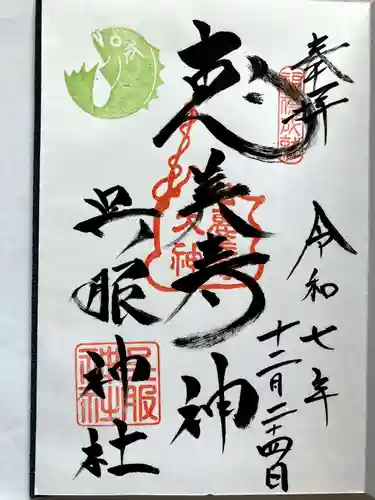 奉拝
令和七年
十二月二十四日
恵美寿神
呉服神社
呉服
神社